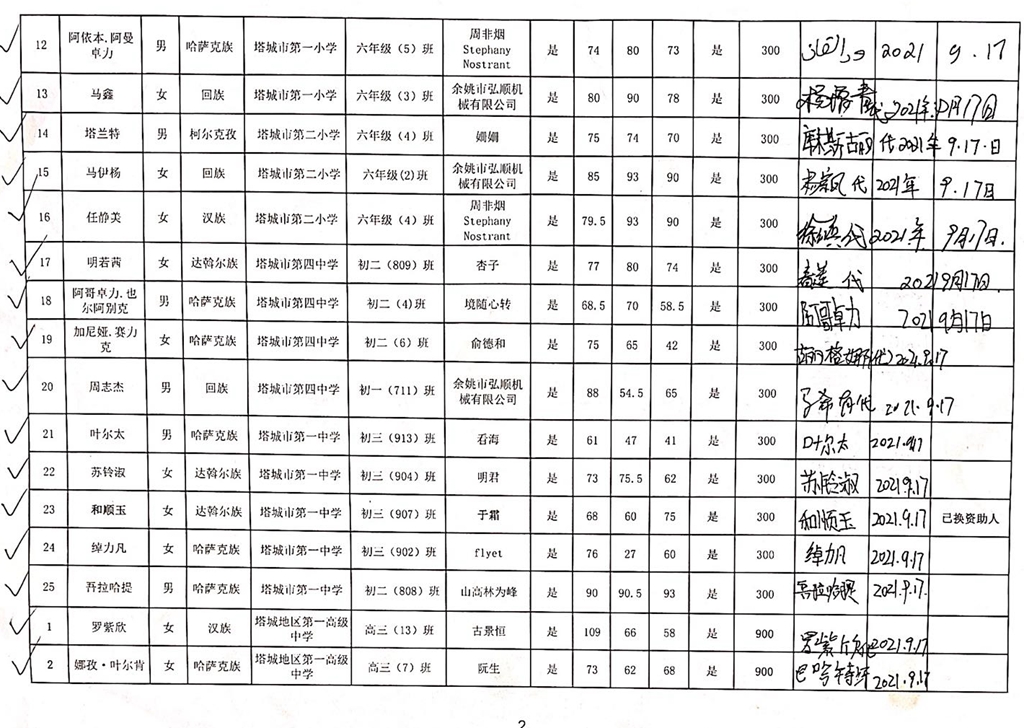 12 阿依本.阿曼卓力 男 哈萨克族 塔城市第一小学 六年级（5）班 周非烟 Stephany Nostrant 是 74 80 73 是 300 2021 9.17
13 马鑫 女 回族 塔城市第一小学 六年级（3）班 余姚市弘顺机械有限公司 是 80 90 78 是 300 2021年 月17日
14 塔兰特 男 柯尔克孜 塔城市第二小学 六年级（4）班 姗姗 是 75 74 70 是 300 库莱斯古丽 代 2021年 9.17.日
15 马伊杨 女 回族 塔城市第二小学 六年级(2)班 余姚市弘顺机械有限公司 是 85 93 90 是 300 代 2021年 9.17日
16 任静美 女 汉族 塔城市第二小学 六年级（4）班 周非烟 Stephany Nostrant 是 79.5 93 90 是 300 代 2021年 9月17日.
17 明若茜 女 达斡尔族 塔城市第四中学 初二（809）班 杏子 是 77 80 74 是 300 代 2021 9月17日.
18 阿哥卓力.也尔阿别克 男 哈萨克族 塔城市第四中学 初二（4)班 境随心转 是 68.5 70 58.5 是 300 阿哥卓力 2021 9月17日
19 加尼娅.赛力克 女 哈萨克族 塔城市第四中学 初二（6）班 俞德和 是 75 65 42 是 300 (代) 2021.9.17
20 周志杰 男 回族 塔城市第四中学 初一（711）班 余姚市弘顺机械有限公司 是 88 54.5 65 是 300 代 2021.9.17
21 叶尔太 男 哈萨克族 塔城市第一中学 初三（913）班 看海 是 61 47 41 是 300 叶尔太 2021.9.17
22 苏铃淑 女 达斡尔族 塔城市第一中学 初三（904）班 明君 是 73 75.5 62 是 300 苏铃淑 2021.9.17
23 和顺玉 女 达斡尔族 塔城市第一中学 初三（907）班 于霜 是 68 60 75 是 300 和顺玉 2021.9.17 已换资助人
24 绰力凡 女 哈萨克族 塔城市第一中学 初三（902）班 flyet 是 76 27 60 是 300 绰力凡 2021.9.17
25 吾拉哈提 男 哈萨克族 塔城市第一中学 初二（808）班 山高林为峰 是 90 90.5 93 是 300 吾拉哈提 2021.9.17.
1 罗紫欣 女 汉族 塔城地区第一高级中学 高三（13）班 古景恒 是 109 66 58 是 900 罗紫欣 2021.9.17
2 娜孜·叶尔肯 女 哈萨克族 塔城地区第一高级中学 高三（7）班 阮生 是 73 62 68 是 900 2021.9.17
2